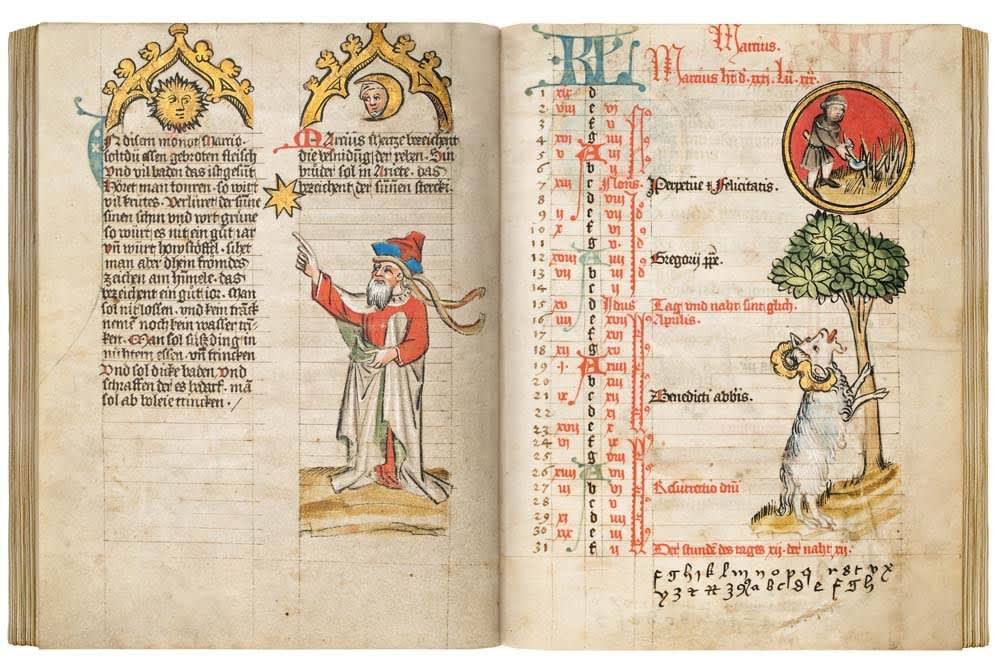 In disem monot Marcio
soltdu essen gebroten fleisch
vnd vil baden das ist gesunt
Höret man tonren so wirt
vil krutes. Verlüret der sunne
sinen schin vnd wirt grüne
so würt es nit ein güt iar
vñ würt höwstöffel. sihet
man aber dhein frömdes
zeichen am himele. das
bezeichent ein güt ior. Man
sol nit lossen. vnd kein tranck
nemē noch kein wasser trin
ken. Man sol süsß ding in
nühtern essen. vnd trincken
Vnd sol dicke baden vnd
schraffen der es bedarf. mā
sol ab poleie trincken.
Marcius bezeichent
die der reben. Sin
brüder sol in Ariete. das
bezeichent der sunnen sterckī.
KL Marcius.
Marcius ht d. xxxi. Lu. xxx.
1 xix d
2 viii e vi
3 f v
4 xvi g iiii
5 v A iii
6 b ii
7 xiii c Nonis Perpetue & Felicitatis.
8 d viii
9 ii e vii
10 x f vi
11 g v
12 xviii A iiii Gregorij ppe.
13 vii b iii
14 c ii
15 xv d Idus Tag vnd naht sint glich.
16 iiii e xvii Aprilis.
17 f xvi
18 xii g xv
19 i A xiiii
20 b xiii
21 ix c xii Benedicti abbis.
22 d xi
23 xvii e x
24 vi f ix
25 g viii
26 xiiii A vii
27 iii b vi Resurrectio dnī
28 c v
29 xi d iiii
30 xix e iii
31 f ii Der stundē des tages xij. der naht xij.
f g h i k l m n o p q r s t v x
y z a b c d e f g h